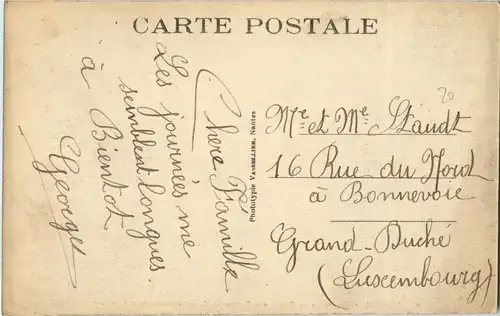 CARTE POSTALE
Chère Famille
Les journées me
semblent longues.
à Bientot
Georges
Phototypie VASSELLIER, Nantes
20
Mr et Me Staudt
16 Rue du Nord
à Bonnevoie
Grand-Duché
(Luxembourg)